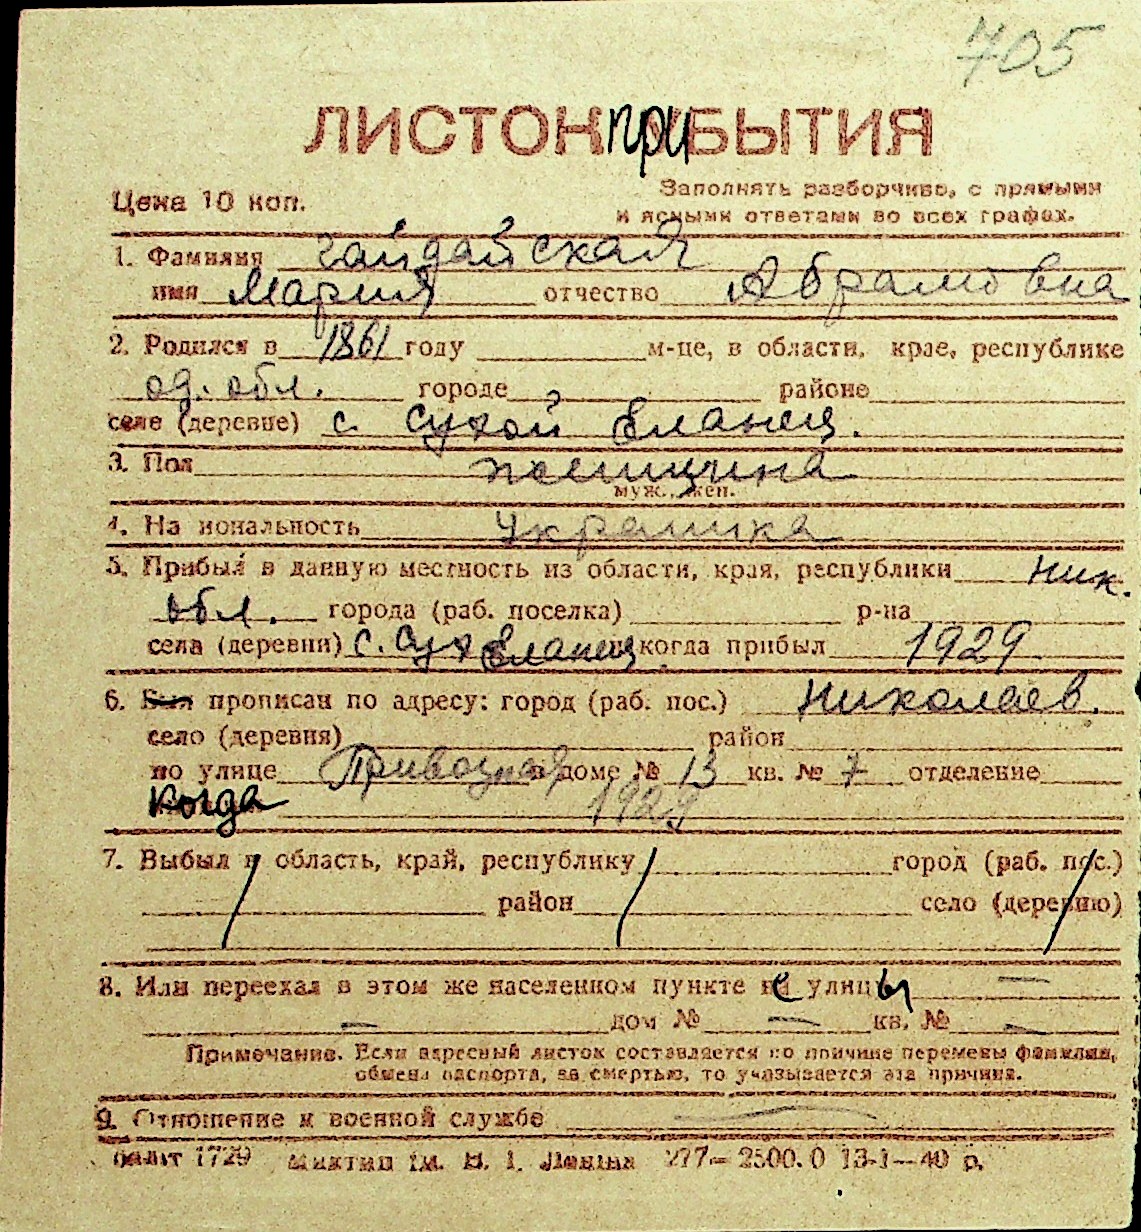 705
ЛИСТОК при БЫТИЯ
Цена 10 коп.
Заполнять разборчиво, с прямыми
и ясными ответами во всех графах.
1. Фамилия Гайдайская
имя Мария отчество Абрамовна
2. Родился в 1861 году м-це, в области, крае, республике
од. обл. городе районе
селе (деревне) с. Сухой Еланец.
3. Пол женщина
муж., жен.
4. На иональность Украинка
5. Прибыл в данную местность из области, края, республики Ник.
обл. города (раб. поселка) р-на
села (деревни) с. Сух Еланец и когда прибыл 1929
6. Был прописан по адресу: город (раб. пос.) Николаев.
село (деревня) район
по улице Привозная в доме № 13 кв. № 7 отделение
когда 1929
7. Выбыл в область, край, республику город (раб. пос.)
район село (деревню)
8. Или переехал в этом же населенном пункте с улицы —
— дом № — кв. № —
Примечание. Если адресный листок составляется по причине перемены фамилии,
обмена паспорта, за смертью, то указывается эта причина.
9. Отношение к военной службе —
1729 ім. В. І. Леніна 277—2500.0 13-I—40 р.